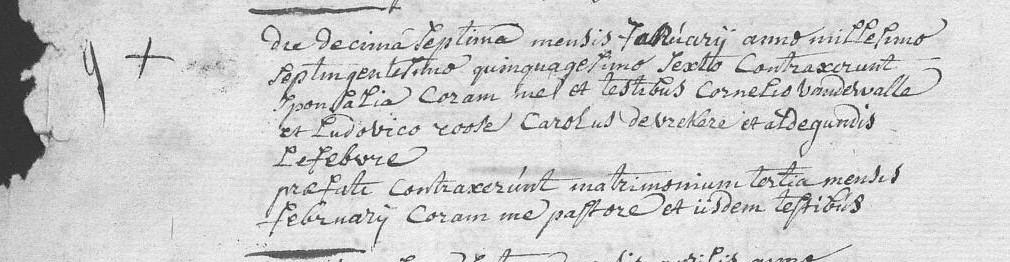 9 +
die decima septima mensis Januarij anno millesimo
septingentesimo quinquagesimo sexto contraxerunt
sponsalia coram me et testibus Cornelio vandewalle
et Ludovico roose Carolus de vrekere et aldegundis
Lefebvre
præfati contraxerunt matrimonium tertia mensis
februarij coram me pastore et iisdem testibus
anno